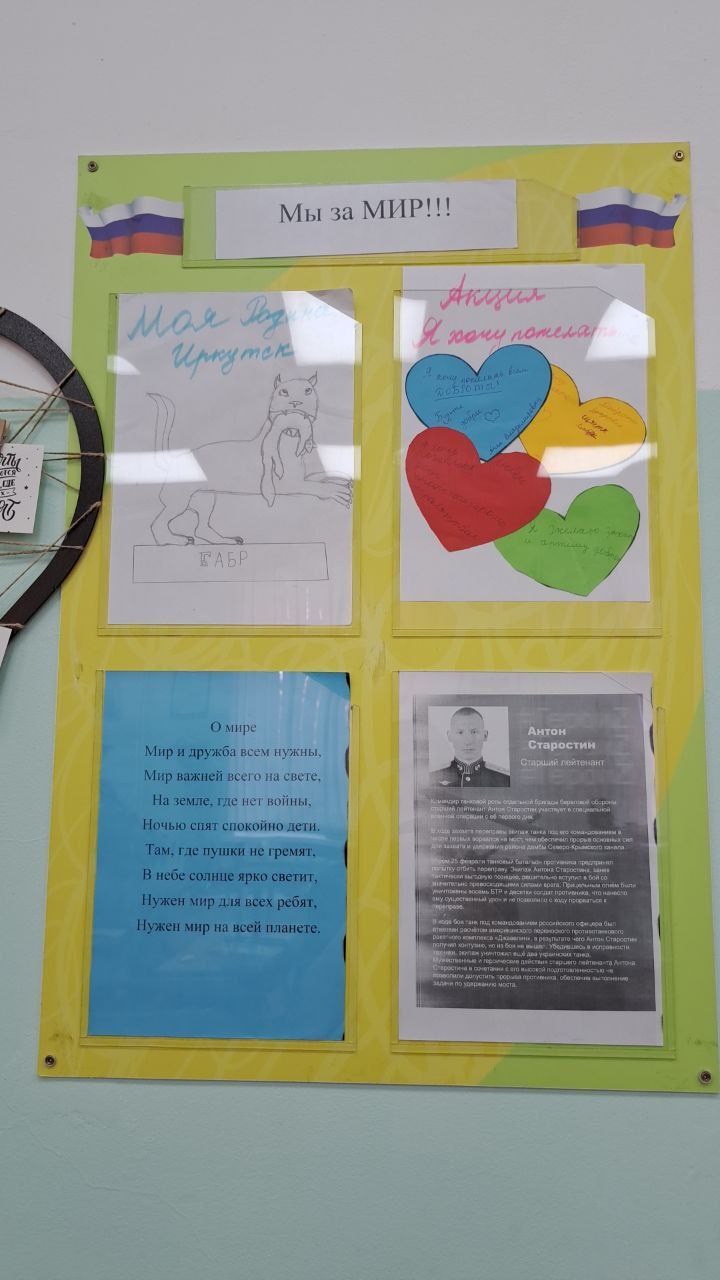 Мы за МИР!!!
Моя Родина
Иркутск
ГАБР
Акция
Я хочу пожелать
Я хочу пожелать всем
ДОБРОТЫ!
Будьте
добры
О мире
Мир и дружба всем нужны,
Мир важней всего на свете,
На земле, где нет войны,
Ночью спят спокойно дети.
Там, где пушки не гремят,
В небе солнце ярко светит,
Нужен мир для всех ребят,
Нужен мир на всей планете.
Антон
Старостин
Старший лейтенант
Командир танковой роты отдельной бригады береговой обороны
старший лейтенант Антон Старостин участвует в специальной
военной операции с её первого дня.
В ходе захвата переправы экипаж танка под его командованием в
числе первых ворвался на мост, чем обеспечил прорыв основных сил
для захвата и удержания района дамбы Северо-Крымского канала.
Утром 25 февраля танковый батальон противника предпринял
попытку отбить переправу. Экипаж Антона Старостина, заняв
тактически выгодную позицию, решительно вступил в бой со
значительно превосходящими силами врага. Прицельным огнём были
уничтожены восемь БТР и десятки солдат противника, что нанесло
ему существенный урон и не позволило с ходу прорваться к
переправе.
В ходе боя танк под командованием российского офицера был
атакован расчётом американского переносного противотанкового
ракетного комплекса «Джавелин», в результате чего Антон Старостин
получил контузию, но из боя не вышел. Убедившись в исправности
техники, экипаж уничтожил ещё два украинских танка.
Мужественные и героические действия старшего лейтенанта Антона
Старостина в сочетании с его высокой подготовленностью не
позволили допустить прорыва противника, обеспечив выполнение
задачи по удержанию моста.